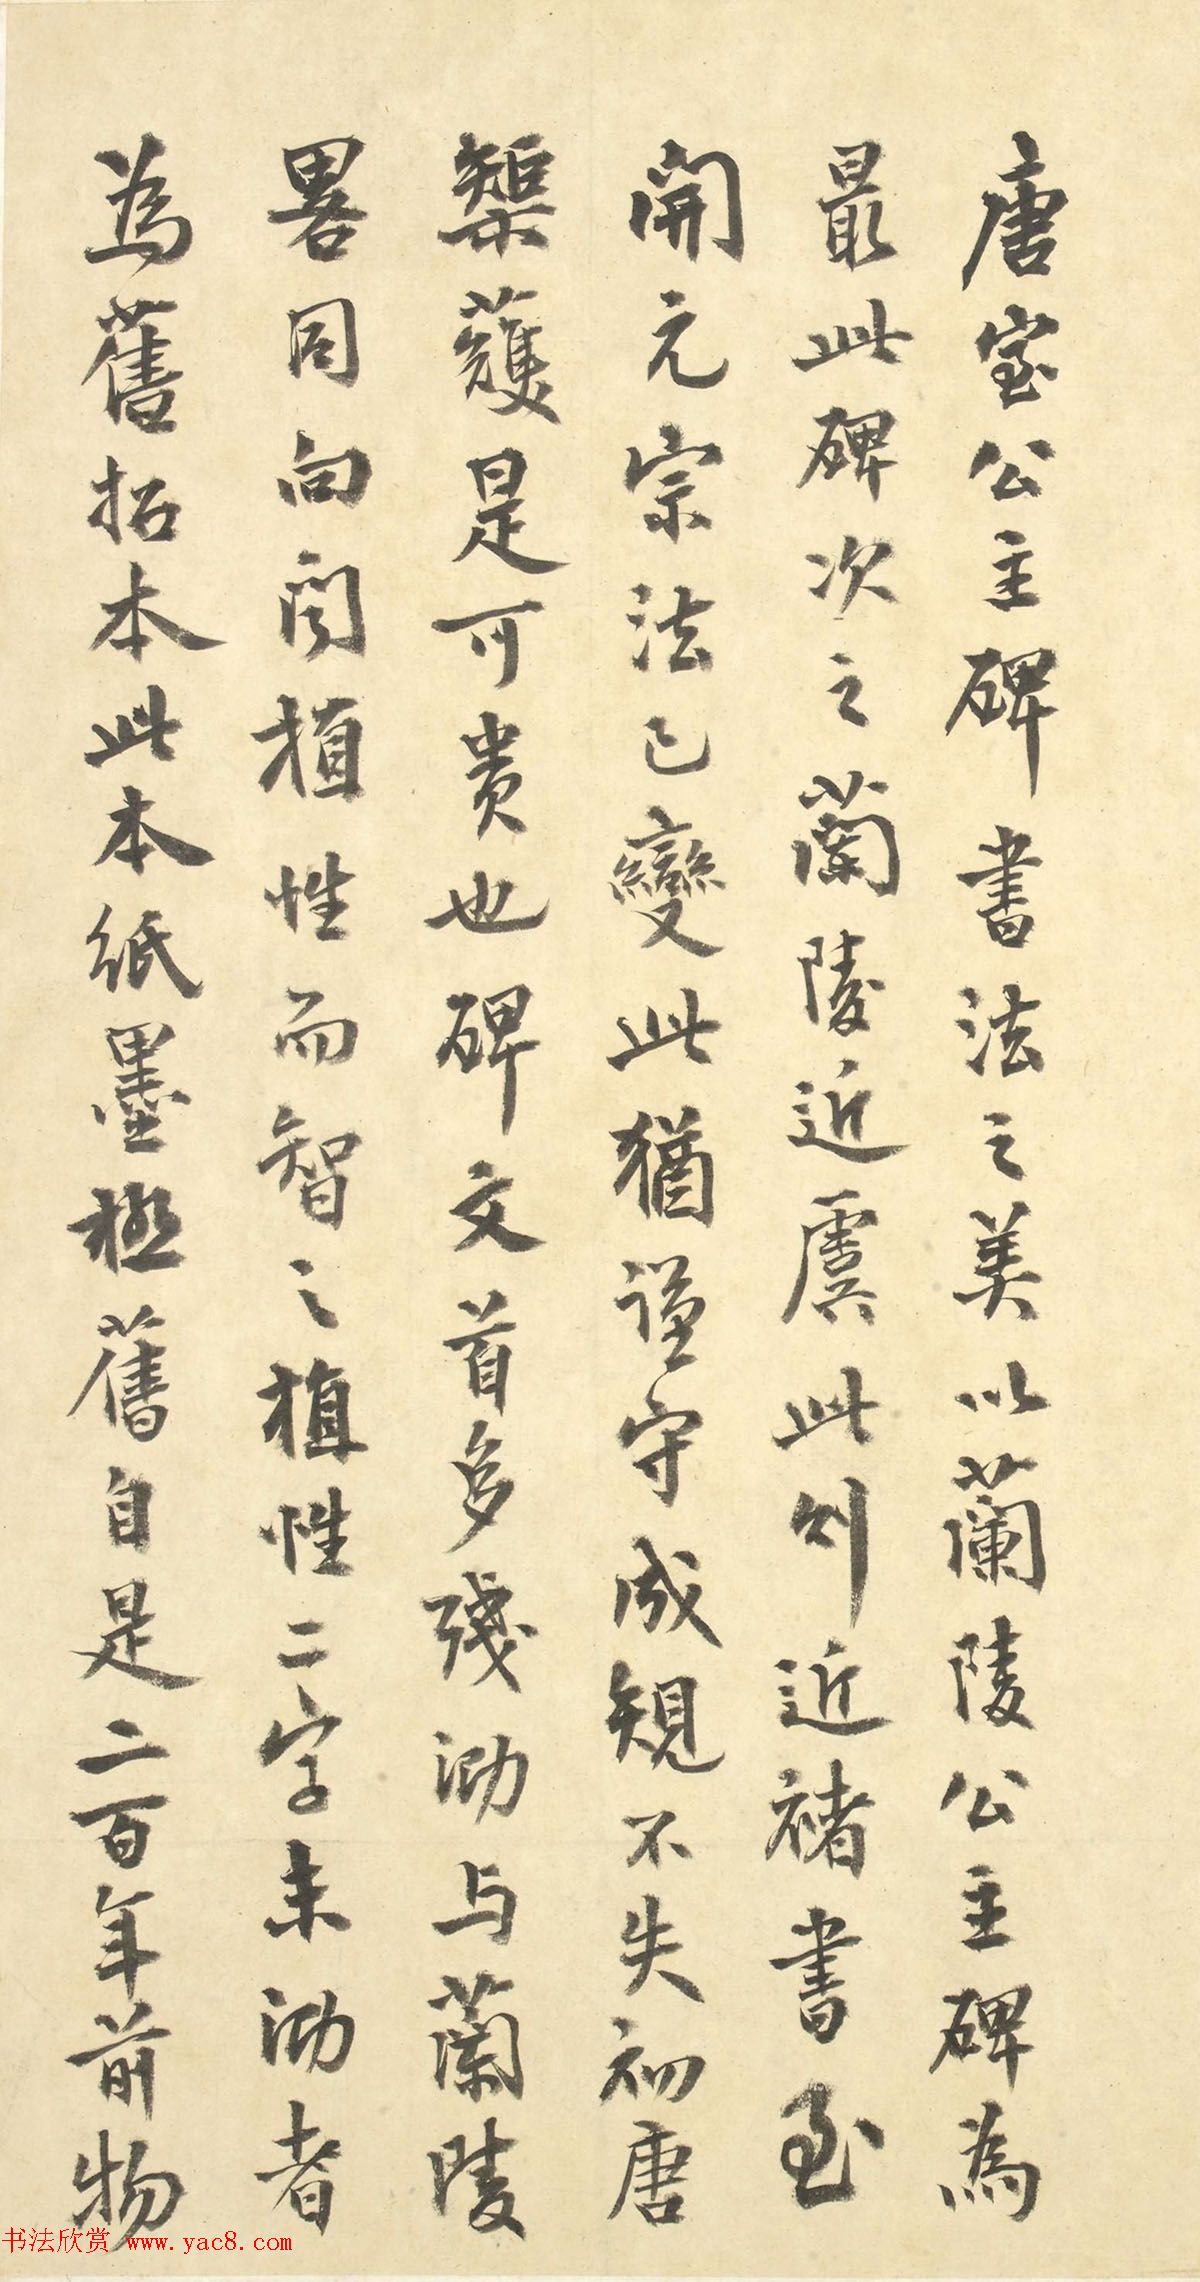 唐室公主碑書法之美以蘭陵公主碑為
最此碑次之蘭陵近虞此則近褚書至
開元宗法已變此猶謹守成規不失初唐
榘蒦是可貴也碑文首多殘泐与蘭陵
畧同向闻植性而智之植性二字未泐者
為舊拓本此本紙墨極舊自是二百年前物
书法欣赏 www.yac8.com